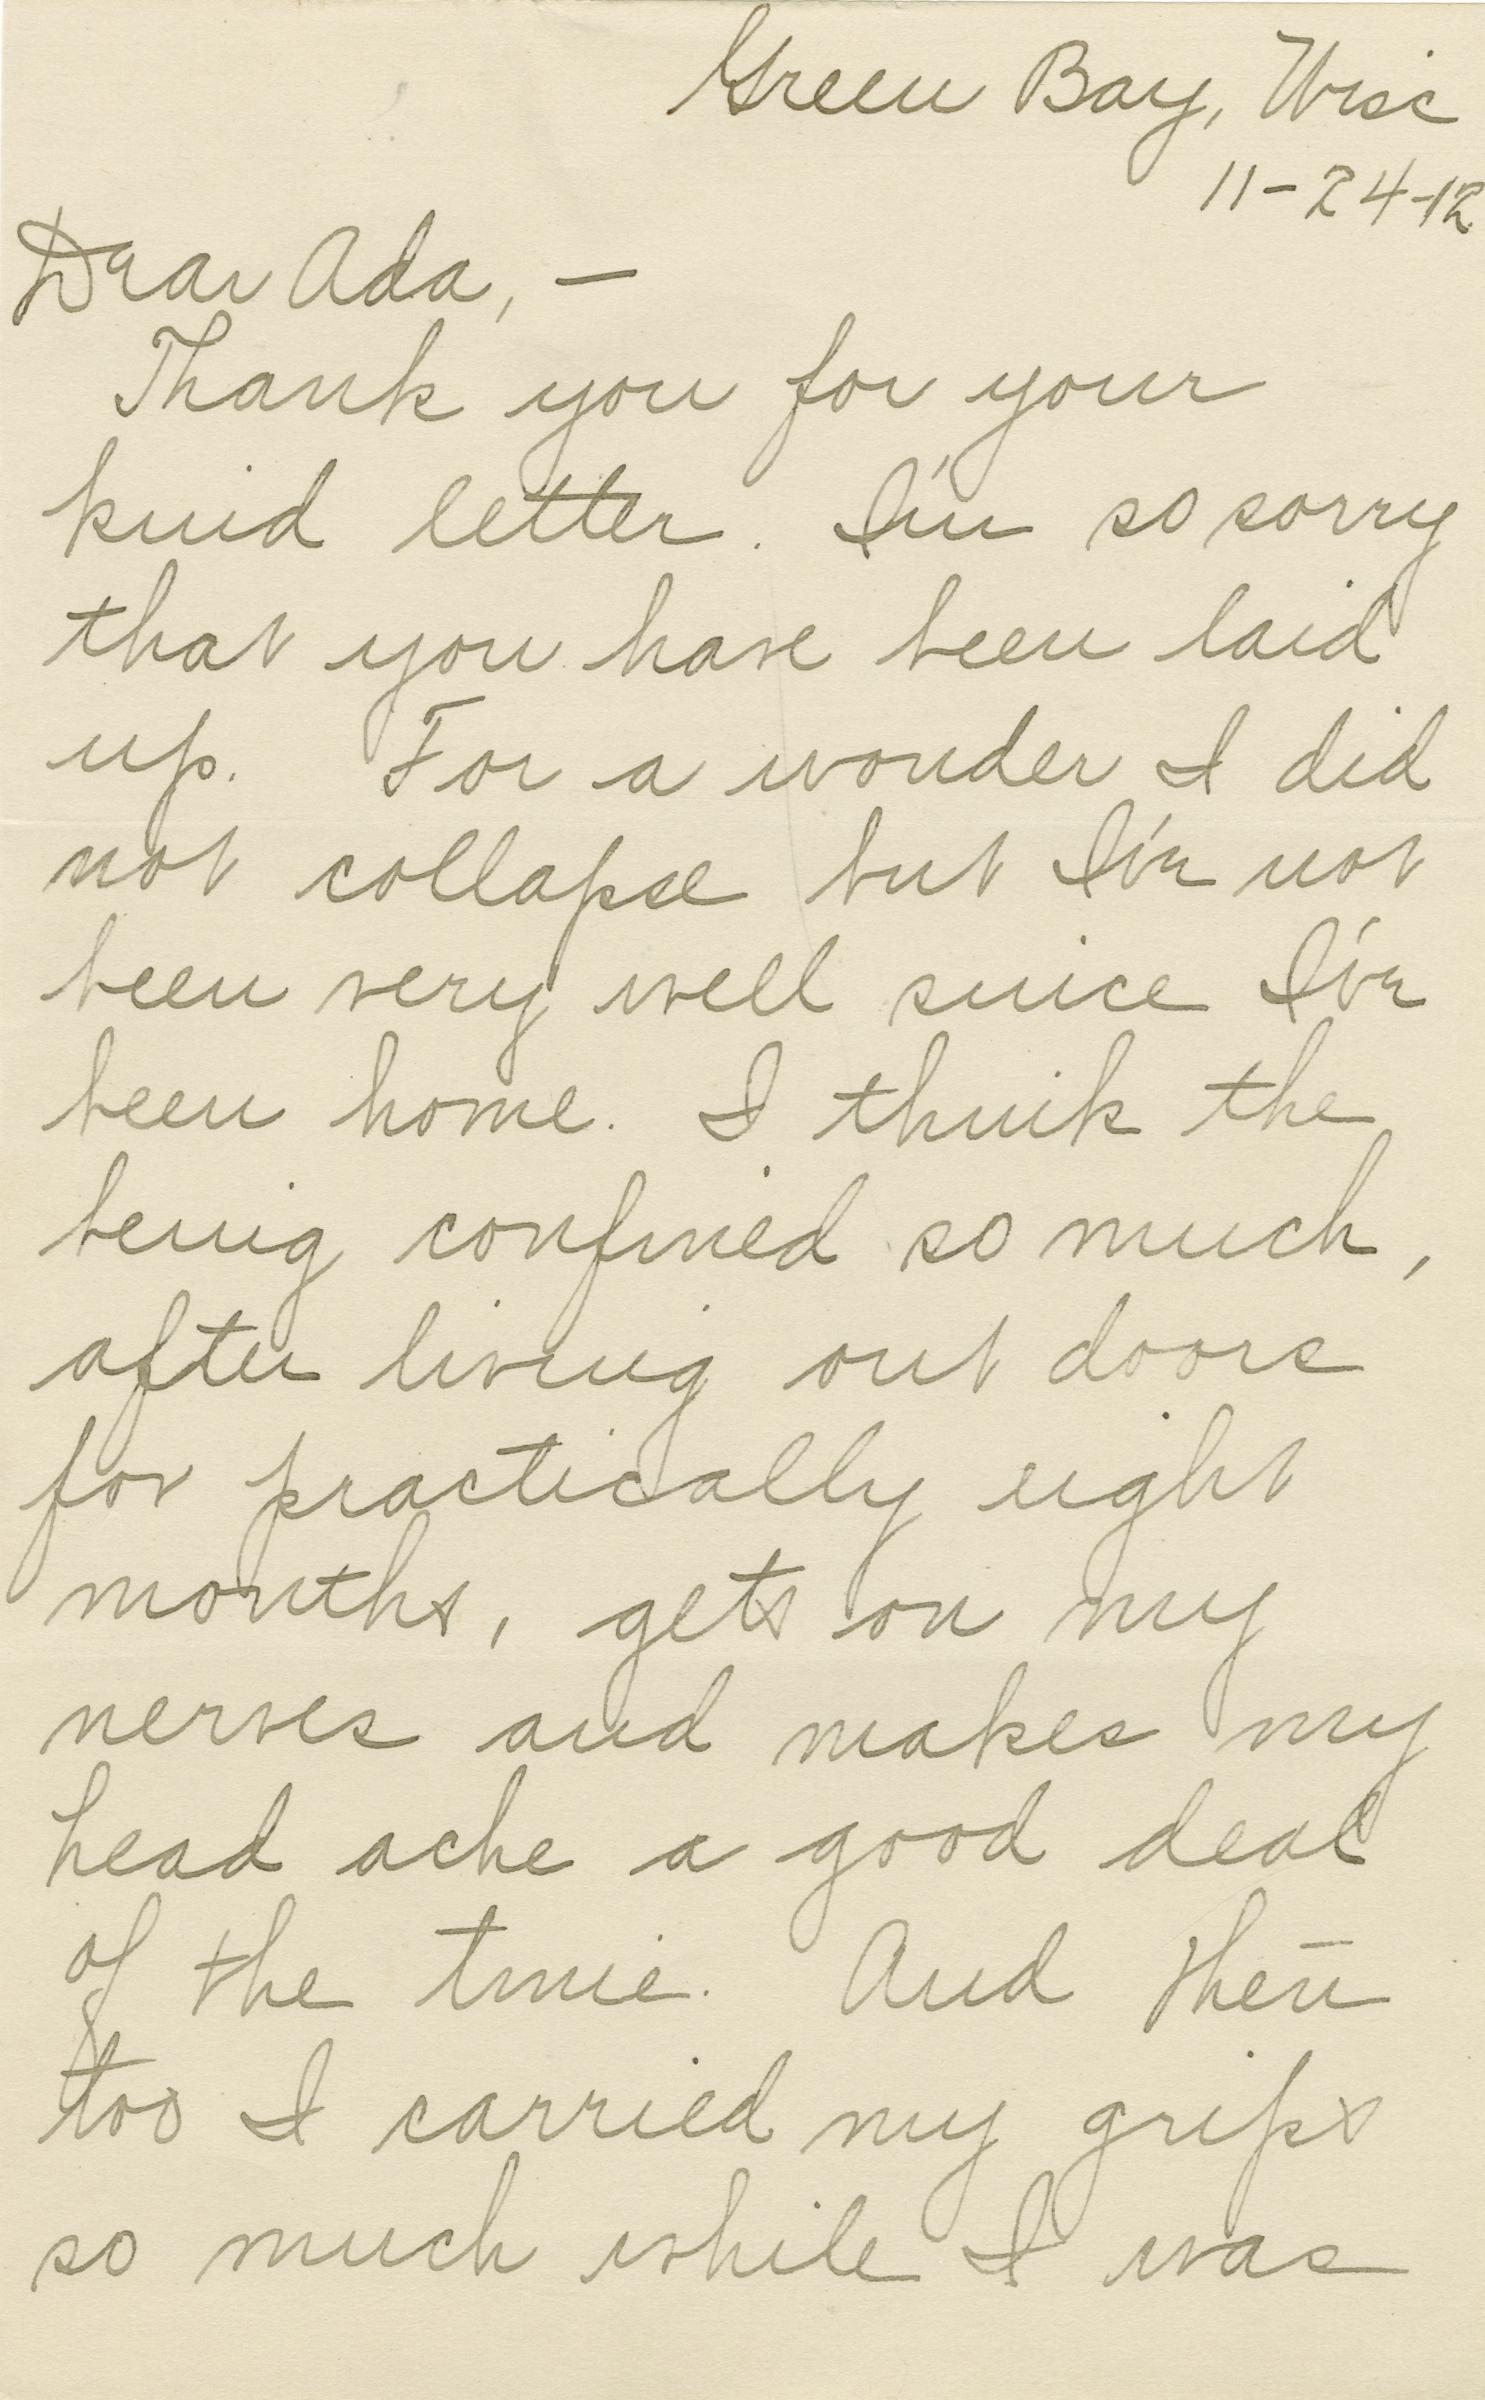 Green Bay, Wisc
11-24-12
Dear Ada, —
Thank you for your
kind letter. I'm so sorry
that you have been laid
up. For a wonder I did
not collapse but I've not
been very well since I've
been home. I think the
being confined so much,
after living out doors
for practically eight
months, gets on my
nerves and makes my
head ache a good deal
of the time. And then
too I carried my grips
so much while I was